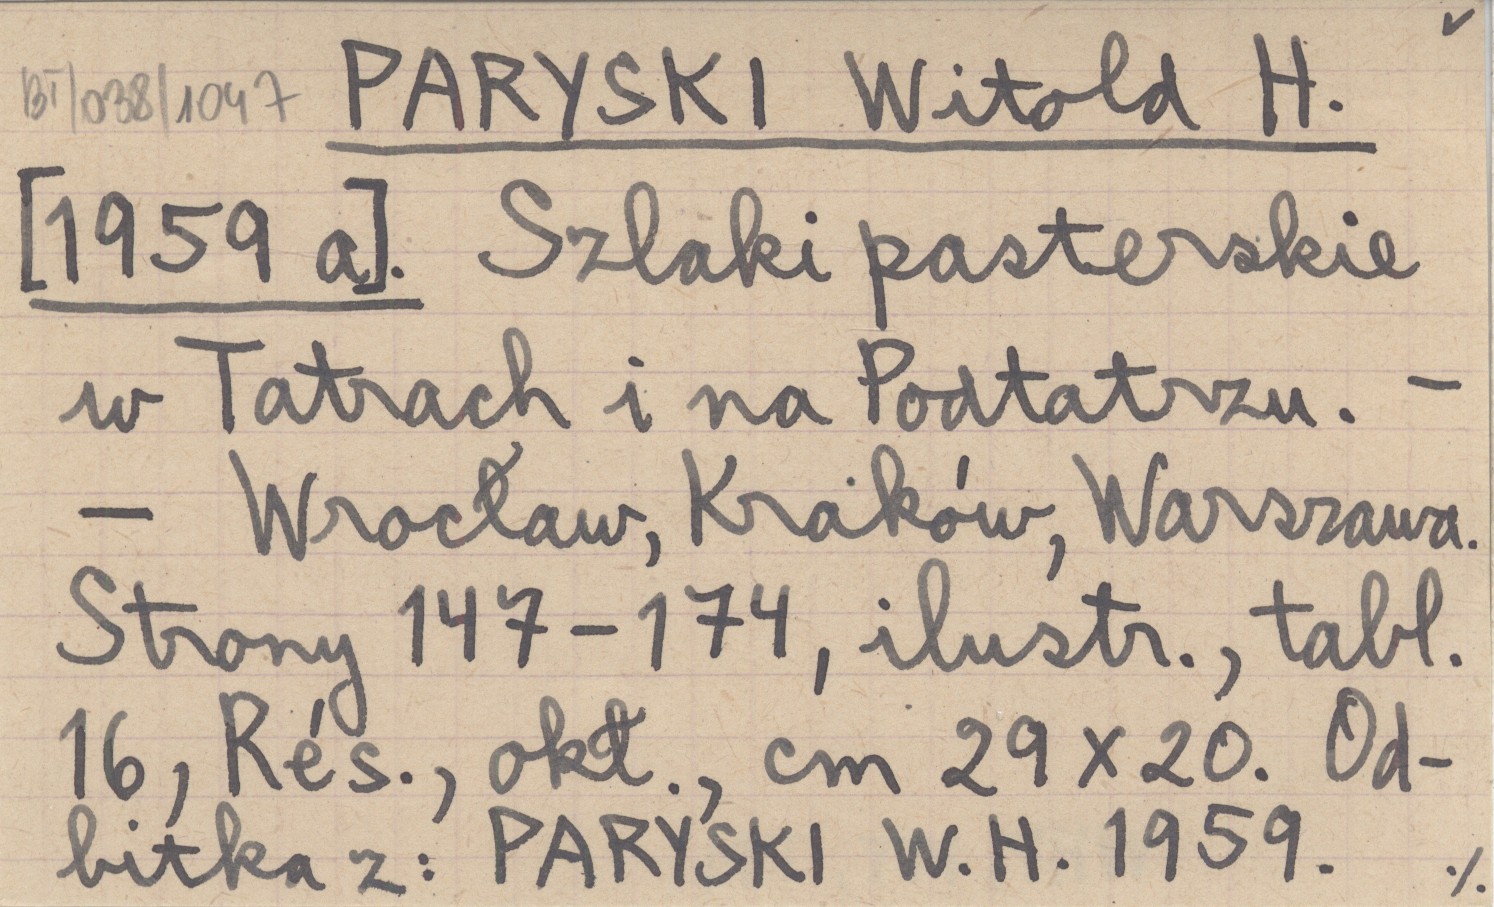 ✓
BT/038/1047 PARYSKI Witold H.
[1959 a]. Szlaki pasterskie
w Tatrach i na Podtatrzu. –
– Wrocław, Kraków, Warszawa.
Strony 147–174, ilustr., tabl.
16, Rés., okł., cm 29 x 20. Od-
bitka z: PARYSKI W. H. 1959. ./.